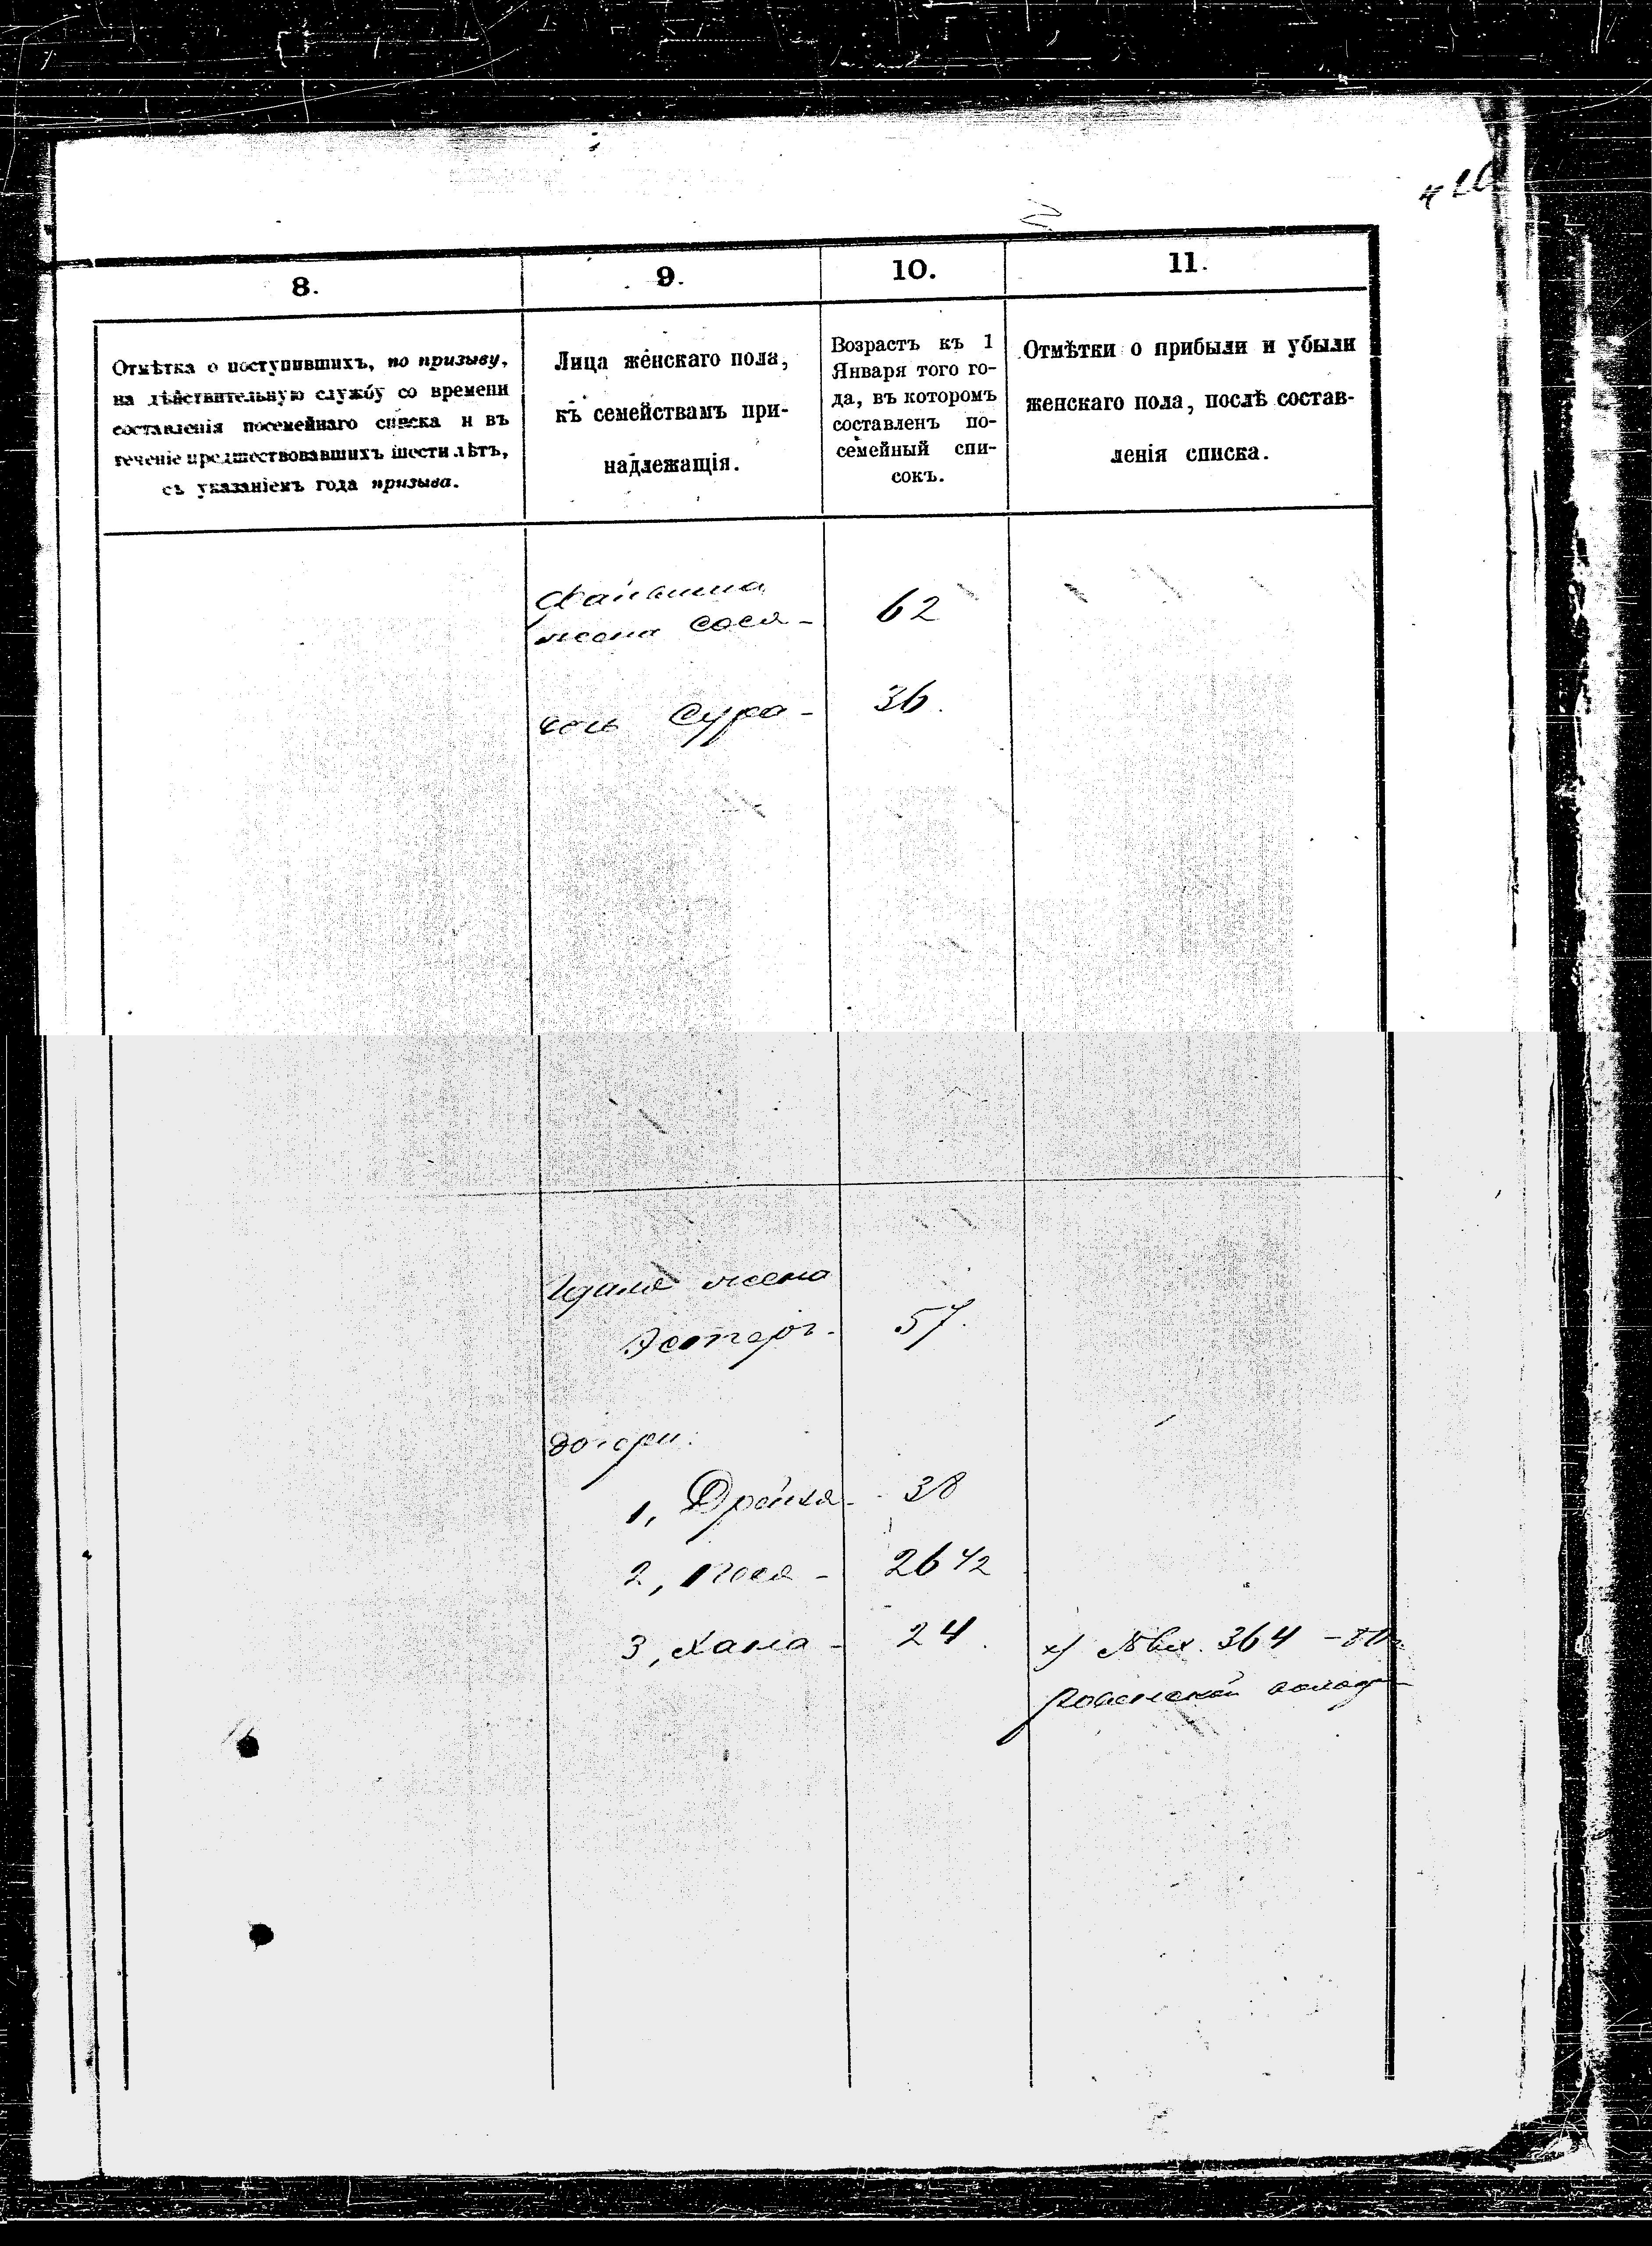 8.
9.
10.
11.
Отмѣтка о поступившихъ, по призыву,
на дѣйствительную службу со времени
составленія посемейнаго списка и въ
теченіе предшествовавшихъ шести лѣтъ,
съ указаніемъ года призыва.
Лица женскаго пола,
къ семействамъ при-
надлежащія.
Возрастъ къ 1
Января того го-
да, въ которомъ
составленъ по-
семейный спи-
сокъ.
Отмѣтки о прибыли и убыли
женскаго пола, послѣ состав-
ленія списка.
жена Сося - 62
дочь Сура - 36.
жена
Эстеръ - 57.
дочери:
1, Дрейзя - 38
2, Нося - 26 1/2
3, Хана - 24.
х) № вх. 364